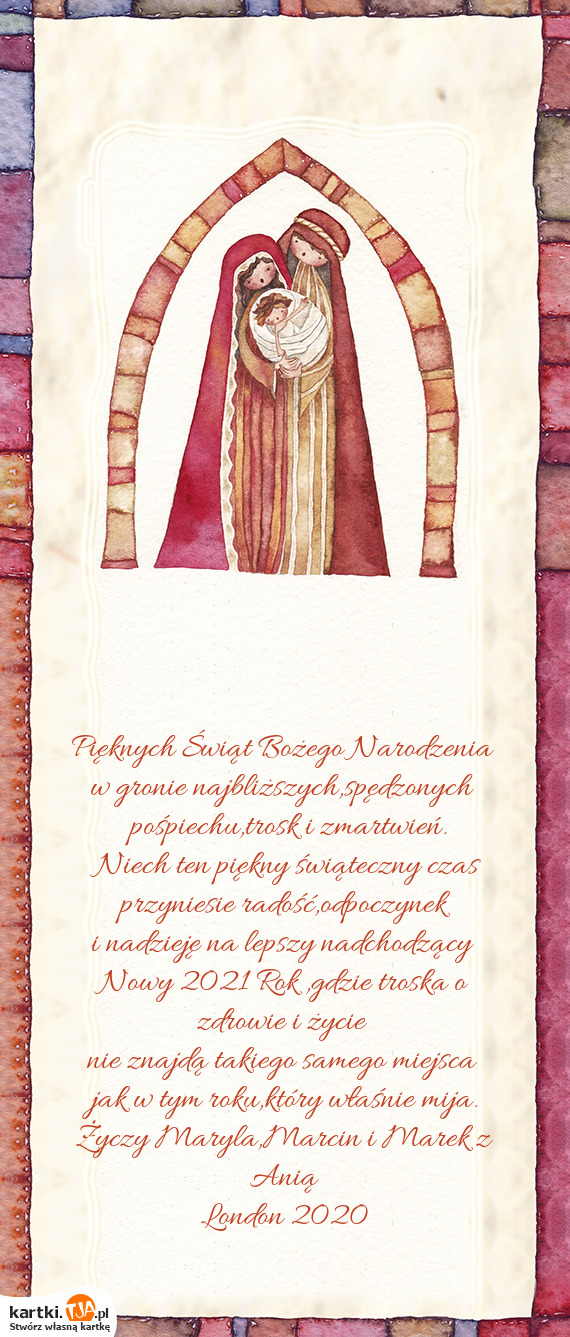 Pięknych Świąt Bożego Narodzenia
w gronie najbliższych,spędzonych
pośpiechu,trosk i zmartwień.
Niech ten piękny świąteczny czas
przyniesie radość,odpoczynek
i nadzieję na lepszy nadchodzący
Nowy 2021 Rok ,gdzie troska o
zdrowie i życie
nie znajdą takiego samego miejsca
jak w tym roku,który właśnie mija.
Życzy Maryla,Marcin i Marek z
Anią
London 2020
kartki.TJA.pl
Stwórz własną kartkę